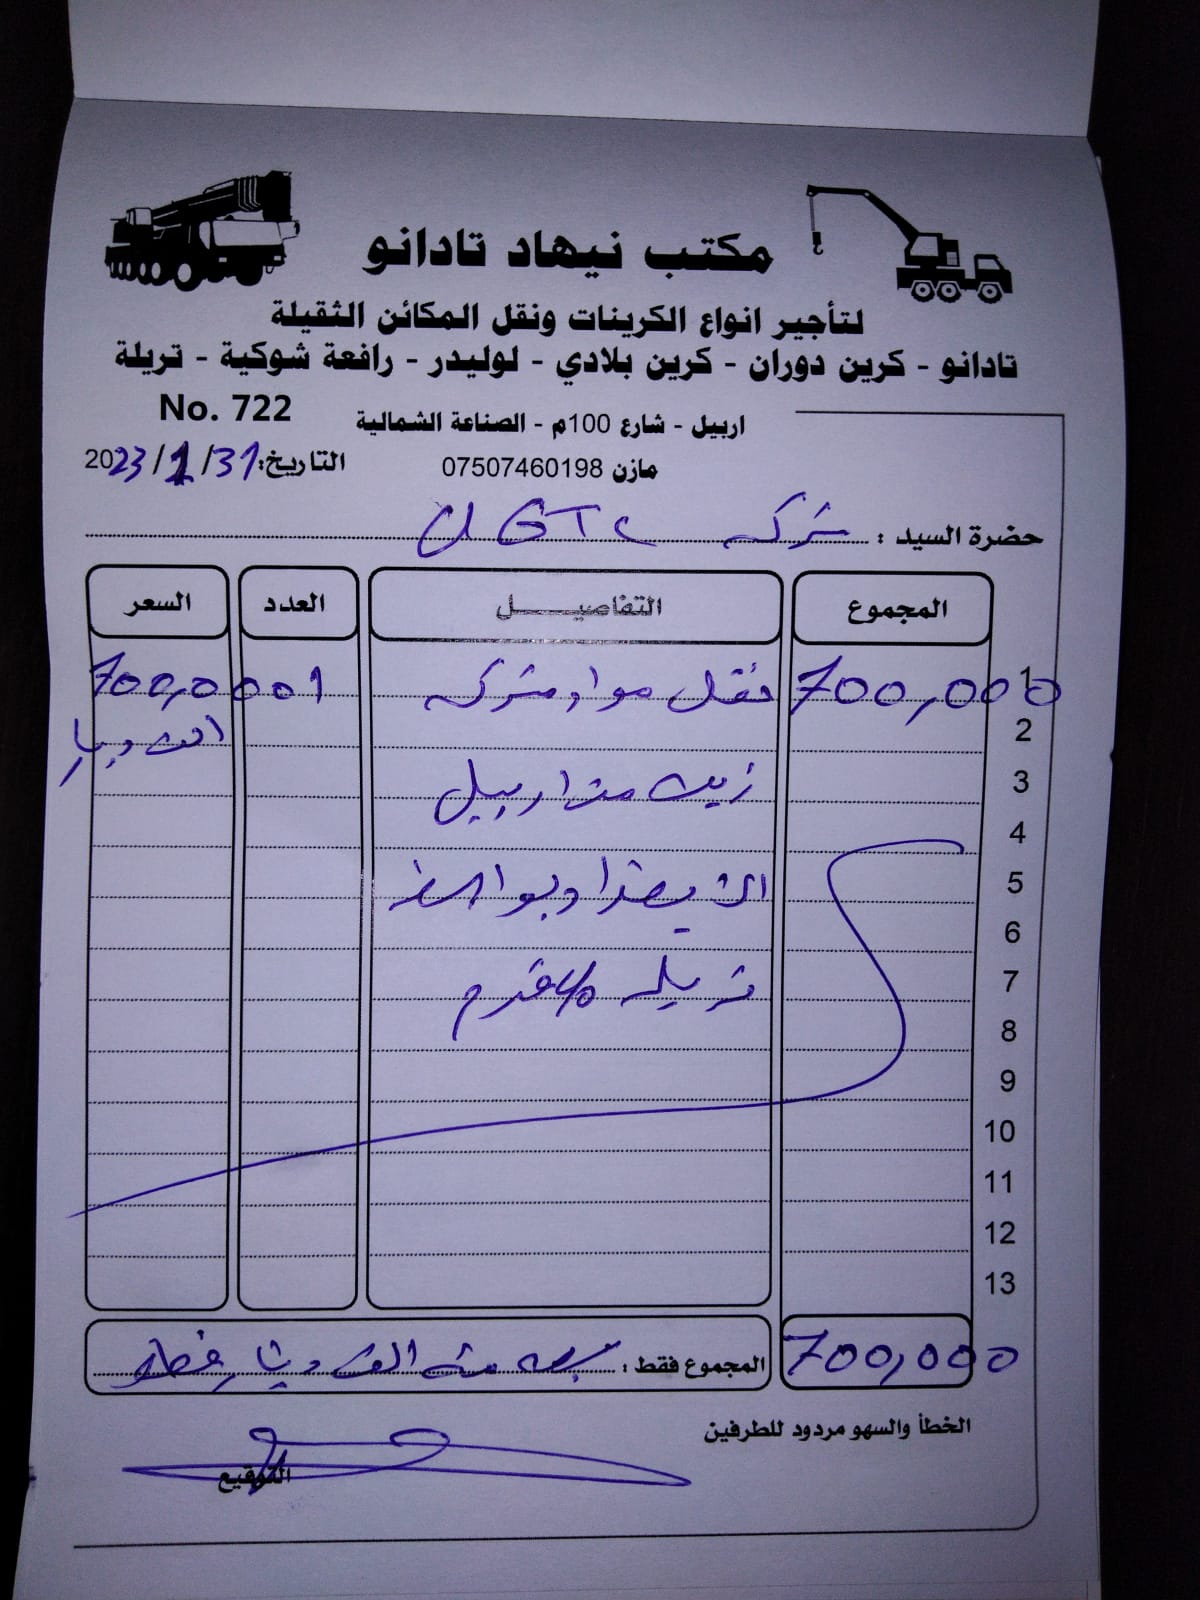 مكتب نيهاد تادانو
لتأجير انواع الكرينات ونقل المكائن الثقيلة
تادانو - كرين دوران - كرين بلادي - لوليدر - رافعة شوكية - تريلة
No. 722
اربيل - شارع 100م - الصناعة الشمالية
التاريخ: 31/1/2023
مازن 07507460198
حضرة السيد : شركه
المجموع التفاصيـــــل العدد السعر
1 700,000 نقل مواد شركه 1 700,000
2 الف دينار
3 زيت من اربيل
4
5 الى بغداد
6
7 تريله 40 قدم
8
9
10
11
12
13
700,000 المجموع فقط : سبعه مئه الف دينار فقط
الخطأ والسهو مردود للطرفين
التوقيع